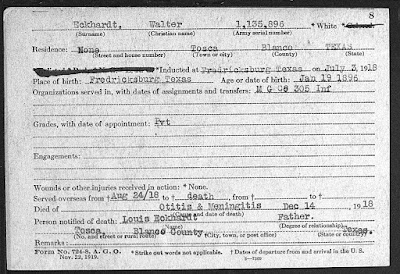 8
Eckhardt, Walter 1,135,896 * White * Colored.
(Surname) (Christian name) (Army serial number)
Residence: None Tosca Blanco TEXAS
(Street and house number) (Town or city) (County) (State)
*Inducted at Fredricksburg Texas on July 3, 1918
Place of birth: Fredricksburg Texas Age or date of birth: Jan 19 1896
Organizations served in, with dates of assignments and transfers: M G Co 305 Inf
Grades, with date of appointment: Pvt
Engagements:
Wounds or other injuries received in action: * None.
Served overseas from † Aug 24/18 to † death, from † to †
Died of Otitis & Meningitis Dec 14 1918
(Cause and date of death)
Person notified of death: Louis Eckhardt Father.
(Name) (Degree of relationship)
Tosca, Blanco County, Texas.
(No. and street or rural route) (City, town, or post office) (State or country)
Remarks:
Form No. 724-8, A. G. O. * Strike out words not applicable. † Dates of departure from and arrival in the U. S.
Nov. 22, 1919.